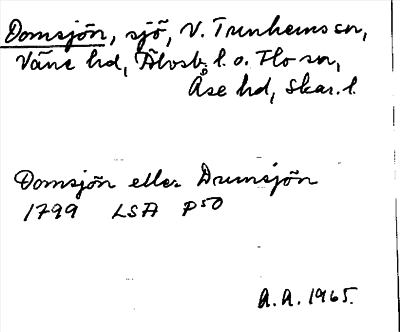 Domsjön, sjö, V. Tunhems sn,
Väne hd, Älvsb. l. o. Flo sn,
Åse hd, Skar. l.
Domsjön eller Drumsjön
1799 LSA P50
A. A. 1965.